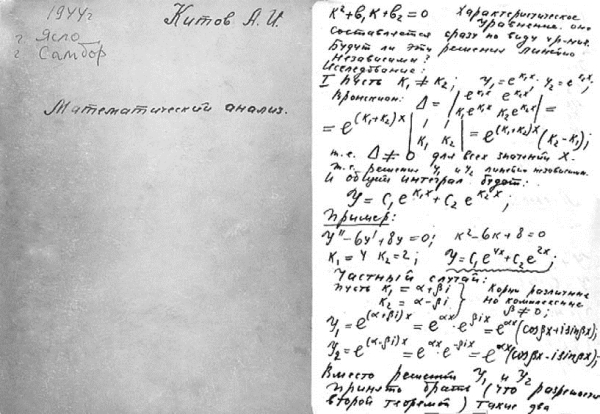 1944 г
г. Ясло
г Самбор
Китов А.И.
Математический анализ.
k²+b₁k+b₂=0 Характеристическое
уравнение. оно
составляется сразу по виду ур-ния.
Будут ли эти решения линейно
независимы?
Исследование:
I Пусть K₁≠K₂; y₁=e^{k₁x} y₂=e^{k₂x};
Вронскиан: Δ = | e^{k₁x} e^{k₂x} ; k₁e^{k₁x} k₂e^{k₂x} | =
= e^{(k₁+k₂)x} | 1 1 ; K₁ K₂ | = e^{(k₁+k₂)x} (k₂-k₁);
т.е. Δ≠0 для всех значений X.
т.е. решения y₁ и y₂ линейно независимы.
и общий интеграл будет:
y=C₁e^{k₁x}+C₂e^{k₂x};
Пример:
y''-6y'+8y=0; k²-6k+8=0
k₁=4 k₂=2; y=C₁e^{4x}+C₂e^{2x};
Частный случай:
Пусть K₁=α+βi } Корни различные
K₂=α-βi } но комплексные
β≠0;
y₁=e^{(α+βi)x}=e^{αx}·e^{βix}=e^{αx}(cosβx+isinβx);
y₂=e^{(α-βi)x}=e^{αx}·e^{-βix}=e^{αx}(cosβx-isinβx);
Вместо решений y₁ и y₂
принято брать (что разрешено
второй теоремой) такие два